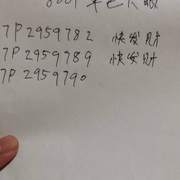 7P2959782 快发财
7P2959789 快发财
7P2959790